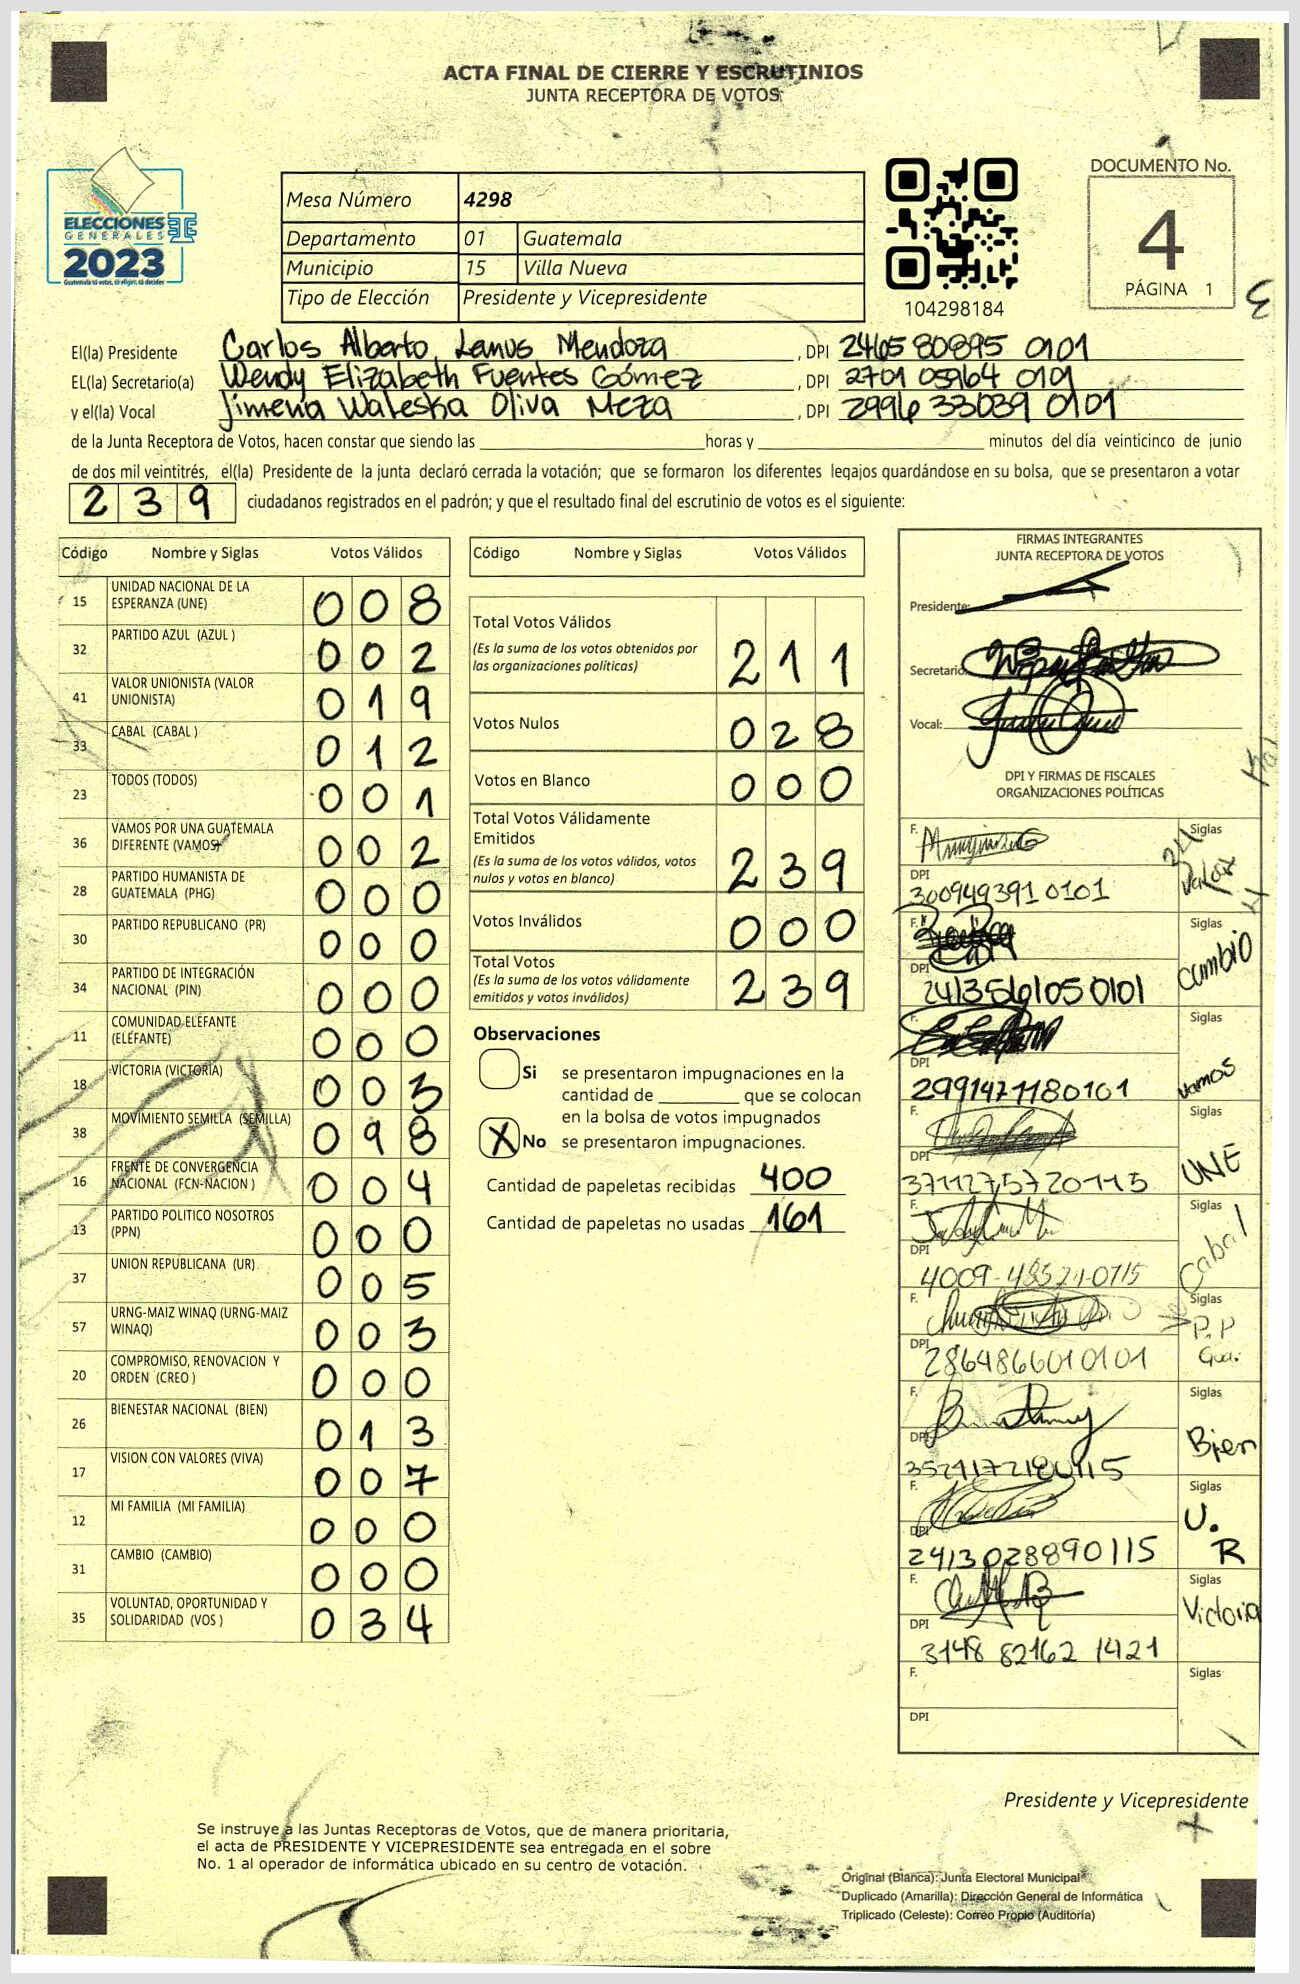 ACTA FINAL DE CIERRE Y ESCRUTINIOS
JUNTA RECEPTORA DE VOTOS
ELECCIONES
GENERALES
2023
Guatemala tú votas, tú eliges, tú decides
Mesa Número 4298
Departamento 01 Guatemala
Municipio 15 Villa Nueva
Tipo de Elección Presidente y Vicepresidente
104298184
DOCUMENTO No.
4
PÁGINA 1
El(la) Presidente Carlos Alberto Lemus Mendoza , DPI 2465 80895 0101
EL(la) Secretario(a) Wendy Elizabeth Fuentes Gómez , DPI 2701 05964 0101
y el(la) Vocal Jimena Waleska Oliva Meza , DPI 2996 33039 0101
de la Junta Receptora de Votos, hacen constar que siendo las horas y minutos del día veinticinco de junio
de dos mil veintitrés, el(la) Presidente de la junta declaró cerrada la votación; que se formaron los diferentes legajos guardándose en su bolsa, que se presentaron a votar
239 ciudadanos registrados en el padrón; y que el resultado final del escrutinio de votos es el siguiente:
Código Nombre y Siglas Votos Válidos
15 UNIDAD NACIONAL DE LA ESPERANZA (UNE) 008
32 PARTIDO AZUL (AZUL ) 002
41 VALOR UNIONISTA (VALOR UNIONISTA) 019
33 CABAL (CABAL ) 012
23 TODOS (TODOS) 001
36 VAMOS POR UNA GUATEMALA DIFERENTE (VAMOS) 002
28 PARTIDO HUMANISTA DE GUATEMALA (PHG) 000
30 PARTIDO REPUBLICANO (PR) 000
34 PARTIDO DE INTEGRACIÓN NACIONAL (PIN) 000
11 COMUNIDAD ELEFANTE (ELEFANTE) 000
18 VICTORIA (VICTORIA) 003
38 MOVIMIENTO SEMILLA (SEMILLA) 098
16 FRENTE DE CONVERGENCIA NACIONAL (FCN-NACION ) 004
13 PARTIDO POLITICO NOSOTROS (PPN) 000
37 UNION REPUBLICANA (UR) 005
57 URNG-MAIZ WINAQ (URNG-MAIZ WINAQ) 003
20 COMPROMISO, RENOVACION Y ORDEN (CREO ) 000
26 BIENESTAR NACIONAL (BIEN) 013
17 VISION CON VALORES (VIVA) 007
12 MI FAMILIA (MI FAMILIA) 000
31 CAMBIO (CAMBIO) 000
35 VOLUNTAD, OPORTUNIDAD Y SOLIDARIDAD (VOS ) 034
Código Nombre y Siglas Votos Válidos
Total Votos Válidos 211
(Es la suma de los votos obtenidos por
las organizaciones políticas)
Votos Nulos 028
Votos en Blanco 000
Total Votos Válidamente
Emitidos 239
(Es la suma de los votos válidos, votos
nulos y votos en blanco)
Votos Inválidos 000
Total Votos 239
(Es la suma de los votos válidamente
emitidos y votos inválidos)
Observaciones
Si se presentaron impugnaciones en la
cantidad de que se colocan
en la bolsa de votos impugnados
X No se presentaron impugnaciones.
Cantidad de papeletas recibidas 400
Cantidad de papeletas no usadas 161
FIRMAS INTEGRANTES
JUNTA RECEPTORA DE VOTOS
Presidente:
Secretario:
Vocal:
DPI Y FIRMAS DE FISCALES
ORGANIZACIONES POLÍTICAS
F. Siglas Valor
DPI 300949391 0101
F. Siglas cambio
DPI 2413561050101
F. Siglas vamos
DPI 2991471180101
F. Siglas UNE
DPI 3711275720115
F. Siglas Cabal
DPI 4009-48521-0715
F. Siglas P.P
DPI 2864866010101
F. Siglas Bien
DPI 3521172180115
F. Siglas U. R
DPI 2413028890115
F. Siglas Victoria
DPI 3148 82162 1421
F. Siglas
DPI
Presidente y Vicepresidente
Se instruye a las Juntas Receptoras de Votos, que de manera prioritaria,
el acta de PRESIDENTE Y VICEPRESIDENTE sea entregada en el sobre
No. 1 al operador de informática ubicado en su centro de votación.
Original (Blanca): Junta Electoral Municipal
Duplicado (Amarilla): Dirección General de Informática
Triplicado (Celeste): Correo Propio (Auditoría)